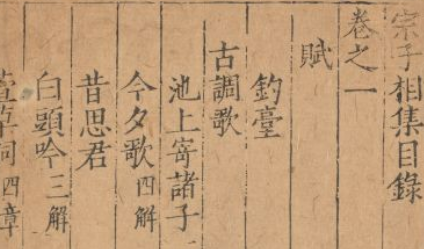 宗子相集目錄
卷之一
賦
釣臺
古調歌
池上寄諸子
今夕歌四解
昔思君
白頭吟三解
萱草詞四章